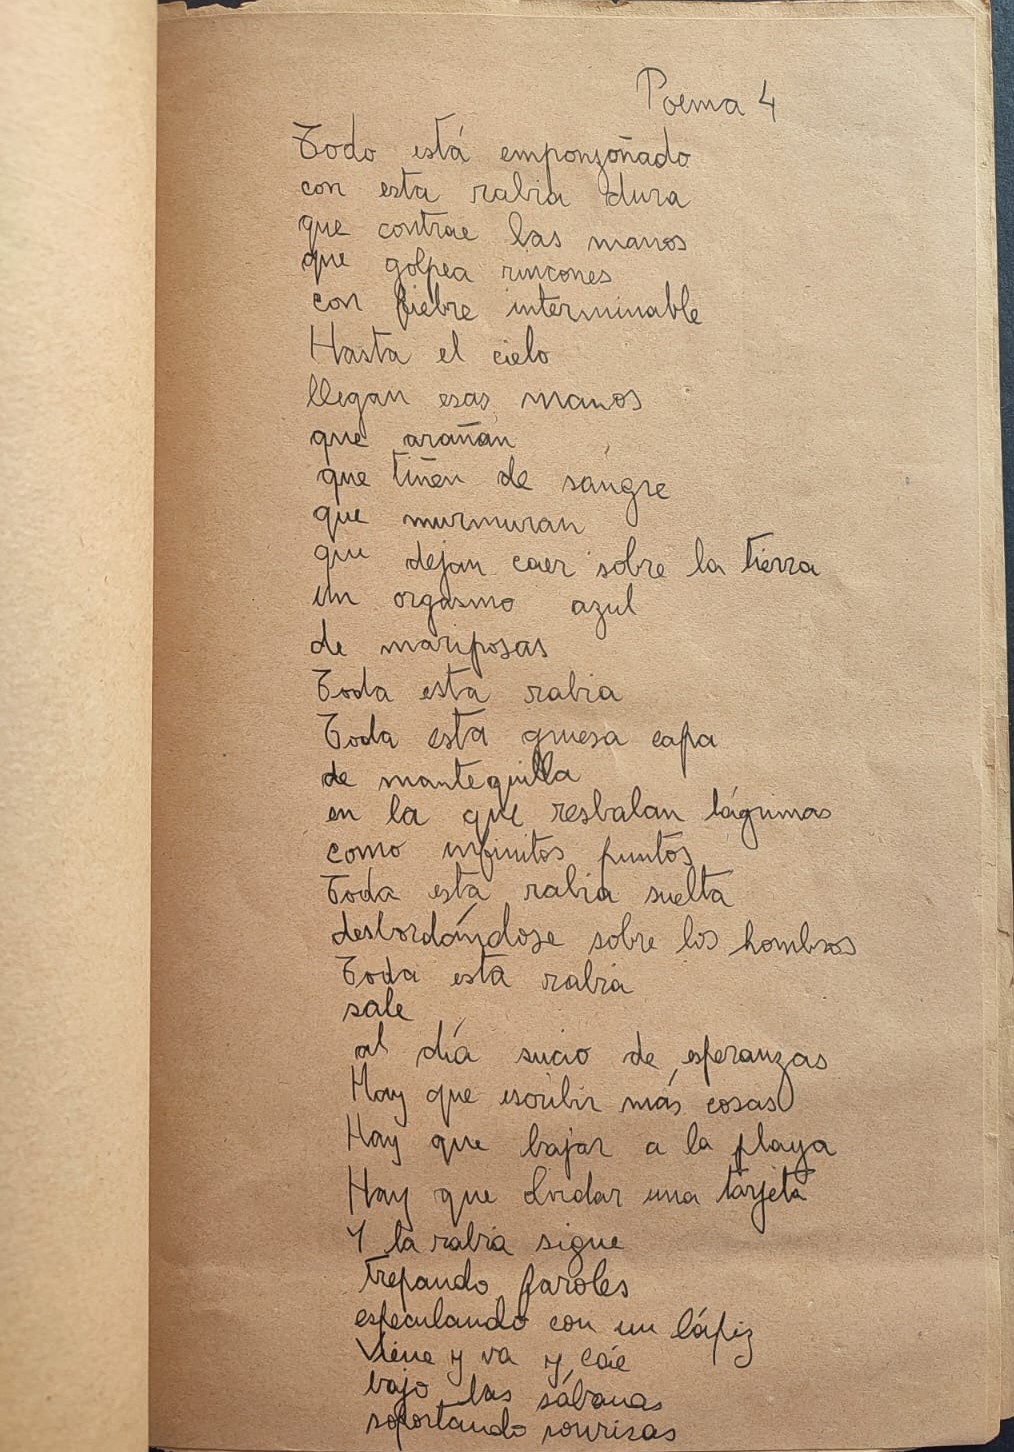 Poema 4
Todo está emponzoñado
con esta rabia dura
que contrae las manos
que golpea rincones
con fiebre interminable
Hasta el cielo
llegan esas manos
que arañan
que tiñen de sangre
que murmuran
que dejan caer sobre la tierra
un orgasmo azul
de mariposas
Toda esta rabia
Toda esta gruesa capa
de mantequilla
en la que resbalan lágrimas
como infinitos puntos
Toda esta rabia suelta
desbordándose sobre los hombros
Toda esta rabia
sale
al día sucio de esperanzas
Hay que escribir más cosas
Hay que bajar a la playa
Hay que olvidar una tarjeta
Y la rabia sigue
trepando faroles
especulando con un lápiz
Viene y va y cae
bajo las sábanas
soportando sonrisas